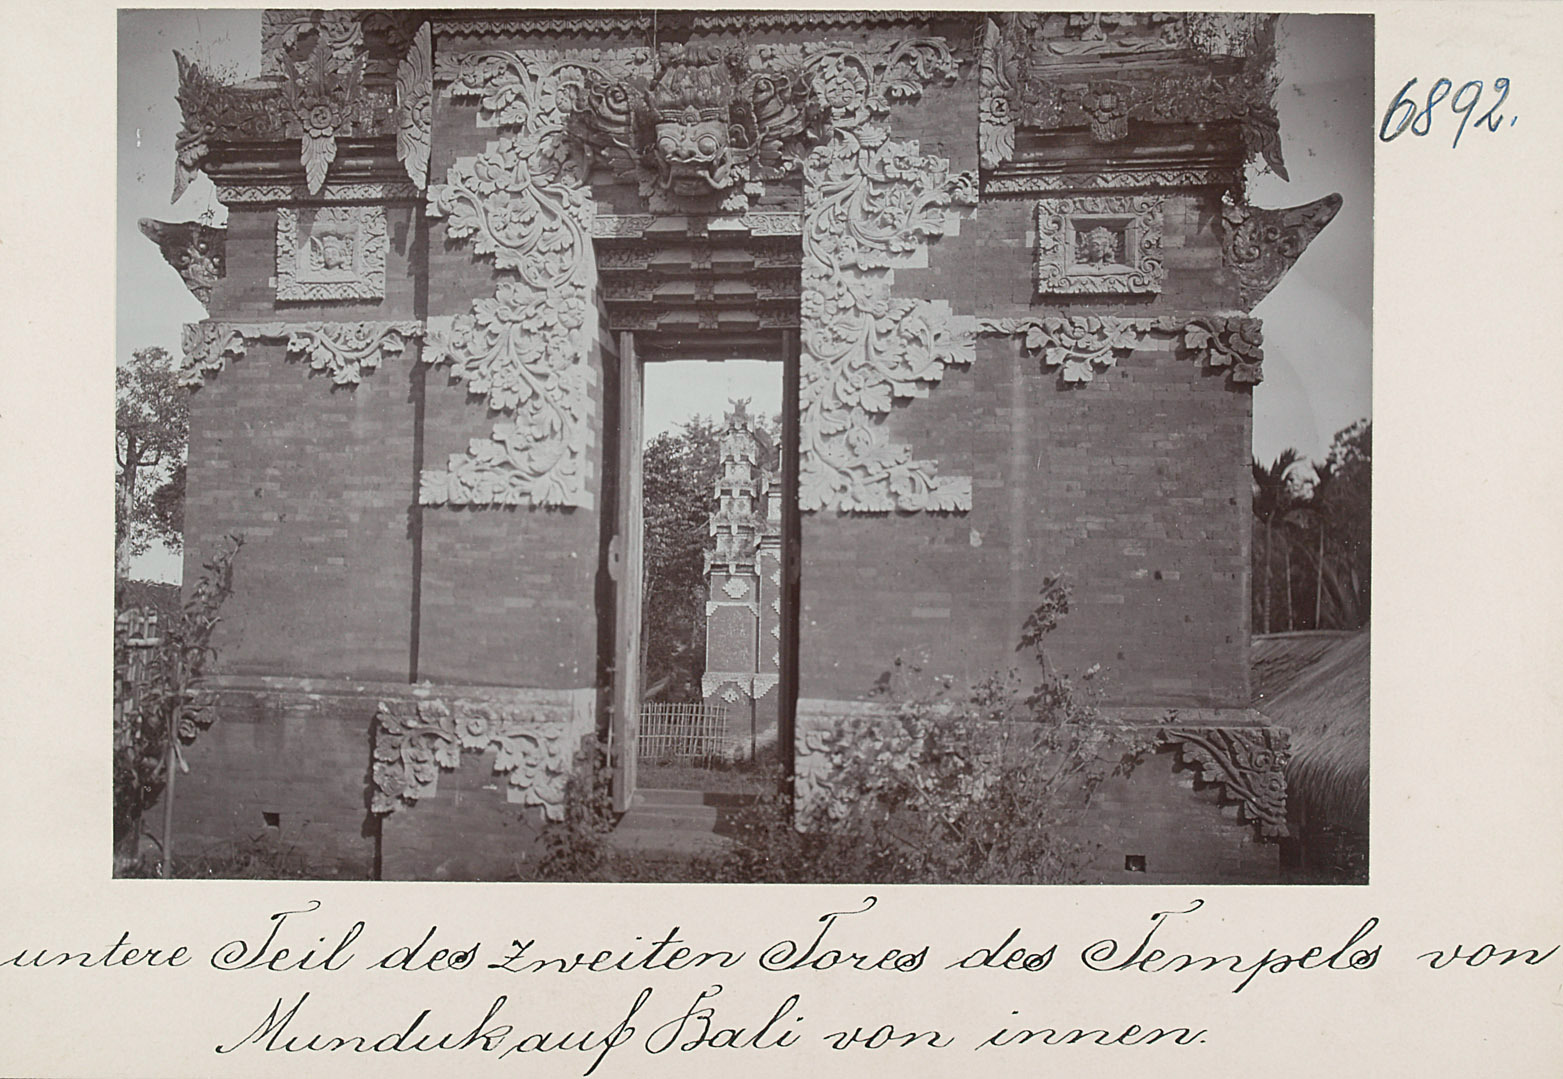 6892.
untere Teil des zweiten Tores des Tempels von
Munduk auf Bali von innen.